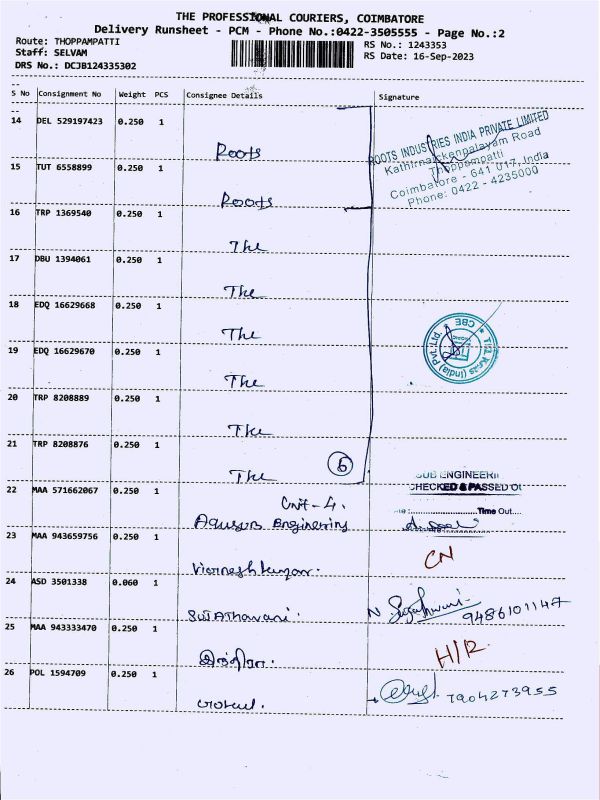 THE PROFESSIONAL COURIERS, COIMBATORE
Delivery Runsheet - PCM - Phone No.:0422-3505555 - Page No.:2
Route: THOPPAMPATTI
Staff: SELVAM
DRS No.: DCJB124335302
RS No.: 1243353
RS Date: 16-Sep-2023
S No Consignment No Weight PCS Consignee Details Signature
14 DEL 529197423 0.250 1
Roots
15 TUT 6558899 0.250 1
Roots
ROOTS INDUSTRIES INDIA PRIVATE LIMITED
Kathirnaickenpalayam Road
Thoppampatti
Coimbatore - 641 017, India
Phone: 0422 - 4235000
16 TRP 1369540 0.250 1
The
17 DBU 1394061 0.250 1
The
18 EDQ 16629668 0.250 1
The
19 EDQ 16629670 0.250 1
The
(India) Pvt. Ltd. * CBE *
20 TRP 8208889 0.250 1
The
21 TRP 8208876 0.250 1
The 6
22 MAA 571662067 0.250 1
Unit - 4.
Engineering
SUB ENGINEERI
CHECKED & PASSED OU
Time Out....
23 MAA 943659756 0.250 1
CN
24 ASD 3501338 0.060 1
N.
9486101147
25 MAA 943333470 0.250 1
H/R
26 POL 1594709 0.250 1
7904273955